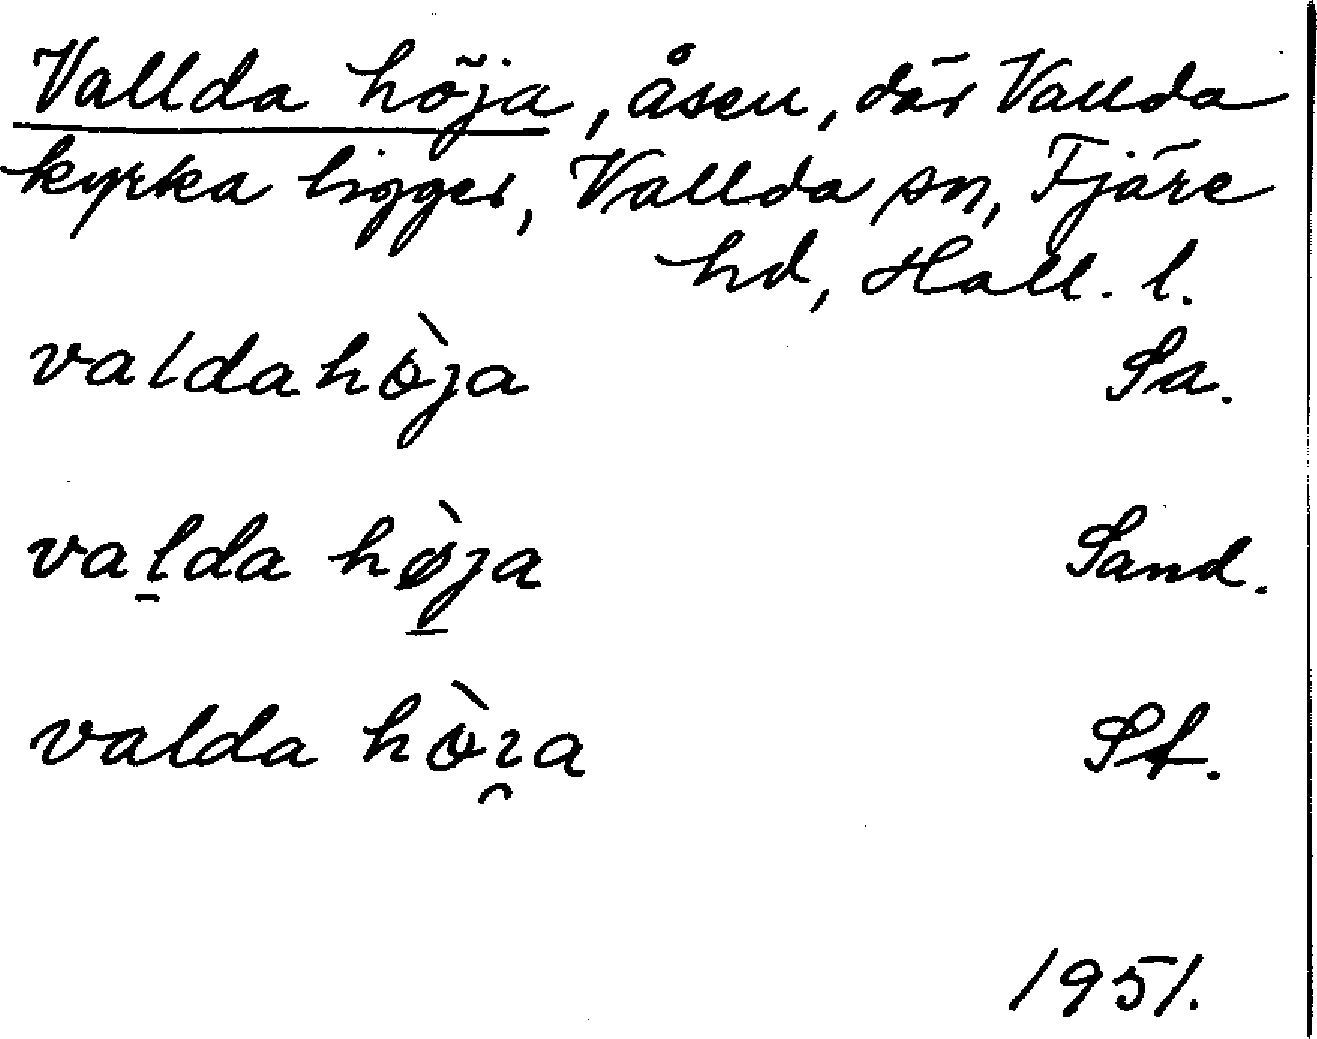 Vallda höja, åsen, där Vallda
kyrka ligger, Vallda sn, Fjäre
hd, Hall. l.
valdahò̈ja Sa.
va̱lda hø̱̀ja Sand.
valda hò̈ı̯a Sf.
1951.